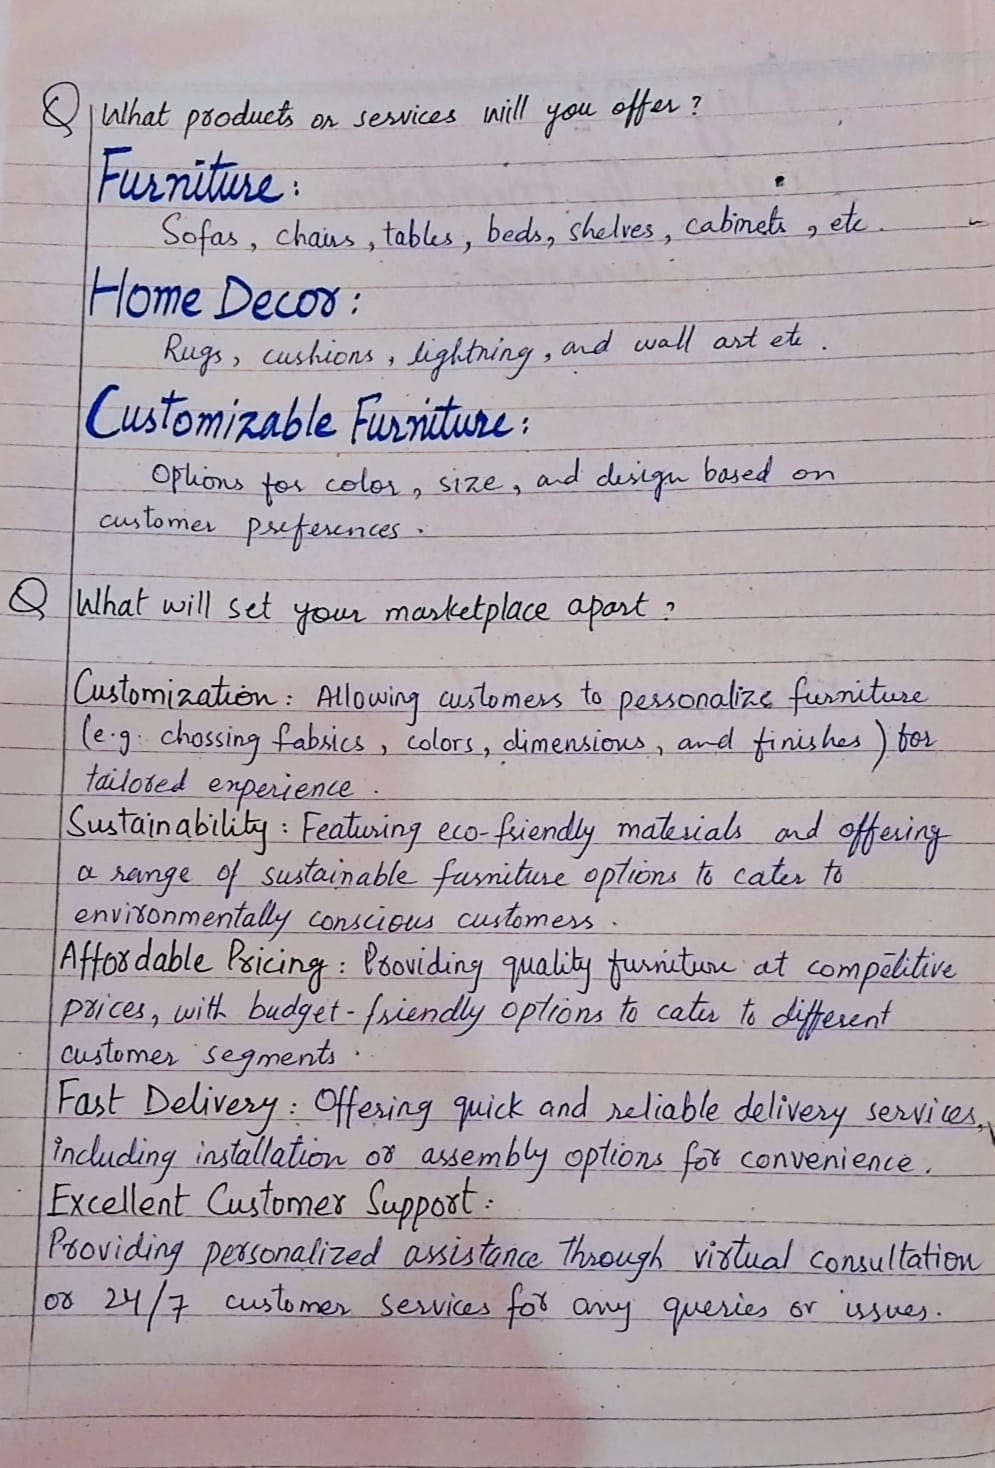 Q What products or services will you offer?
Furniture:
Sofas, chairs, tables, beds, shelves, cabinets, etc.
Home Decor:
Rugs, cushions, lightning, and wall art etc.
Customizable Furniture:
Options for color, size, and design based on
customer preferences.
Q What will set your marketplace apart?
Customization: Allowing customers to personalize furniture
(e.g. chossing fabrics, colors, dimensions, and finishes) for
tailored experience.
Sustainability: Featuring eco-friendly materials and offering
a range of sustainable furniture options to cater to
environmentally conscious customers.
Affordable Pricing: Providing quality furniture at competitive
prices, with budget-friendly options to cater to different
customer segments.
Fast Delivery: Offering quick and reliable delivery services,
including installation or assembly options for convenience.
Excellent Customer Support:
Providing personalized assistance through virtual consultation
or 24/7 customer services for any queries or issues.